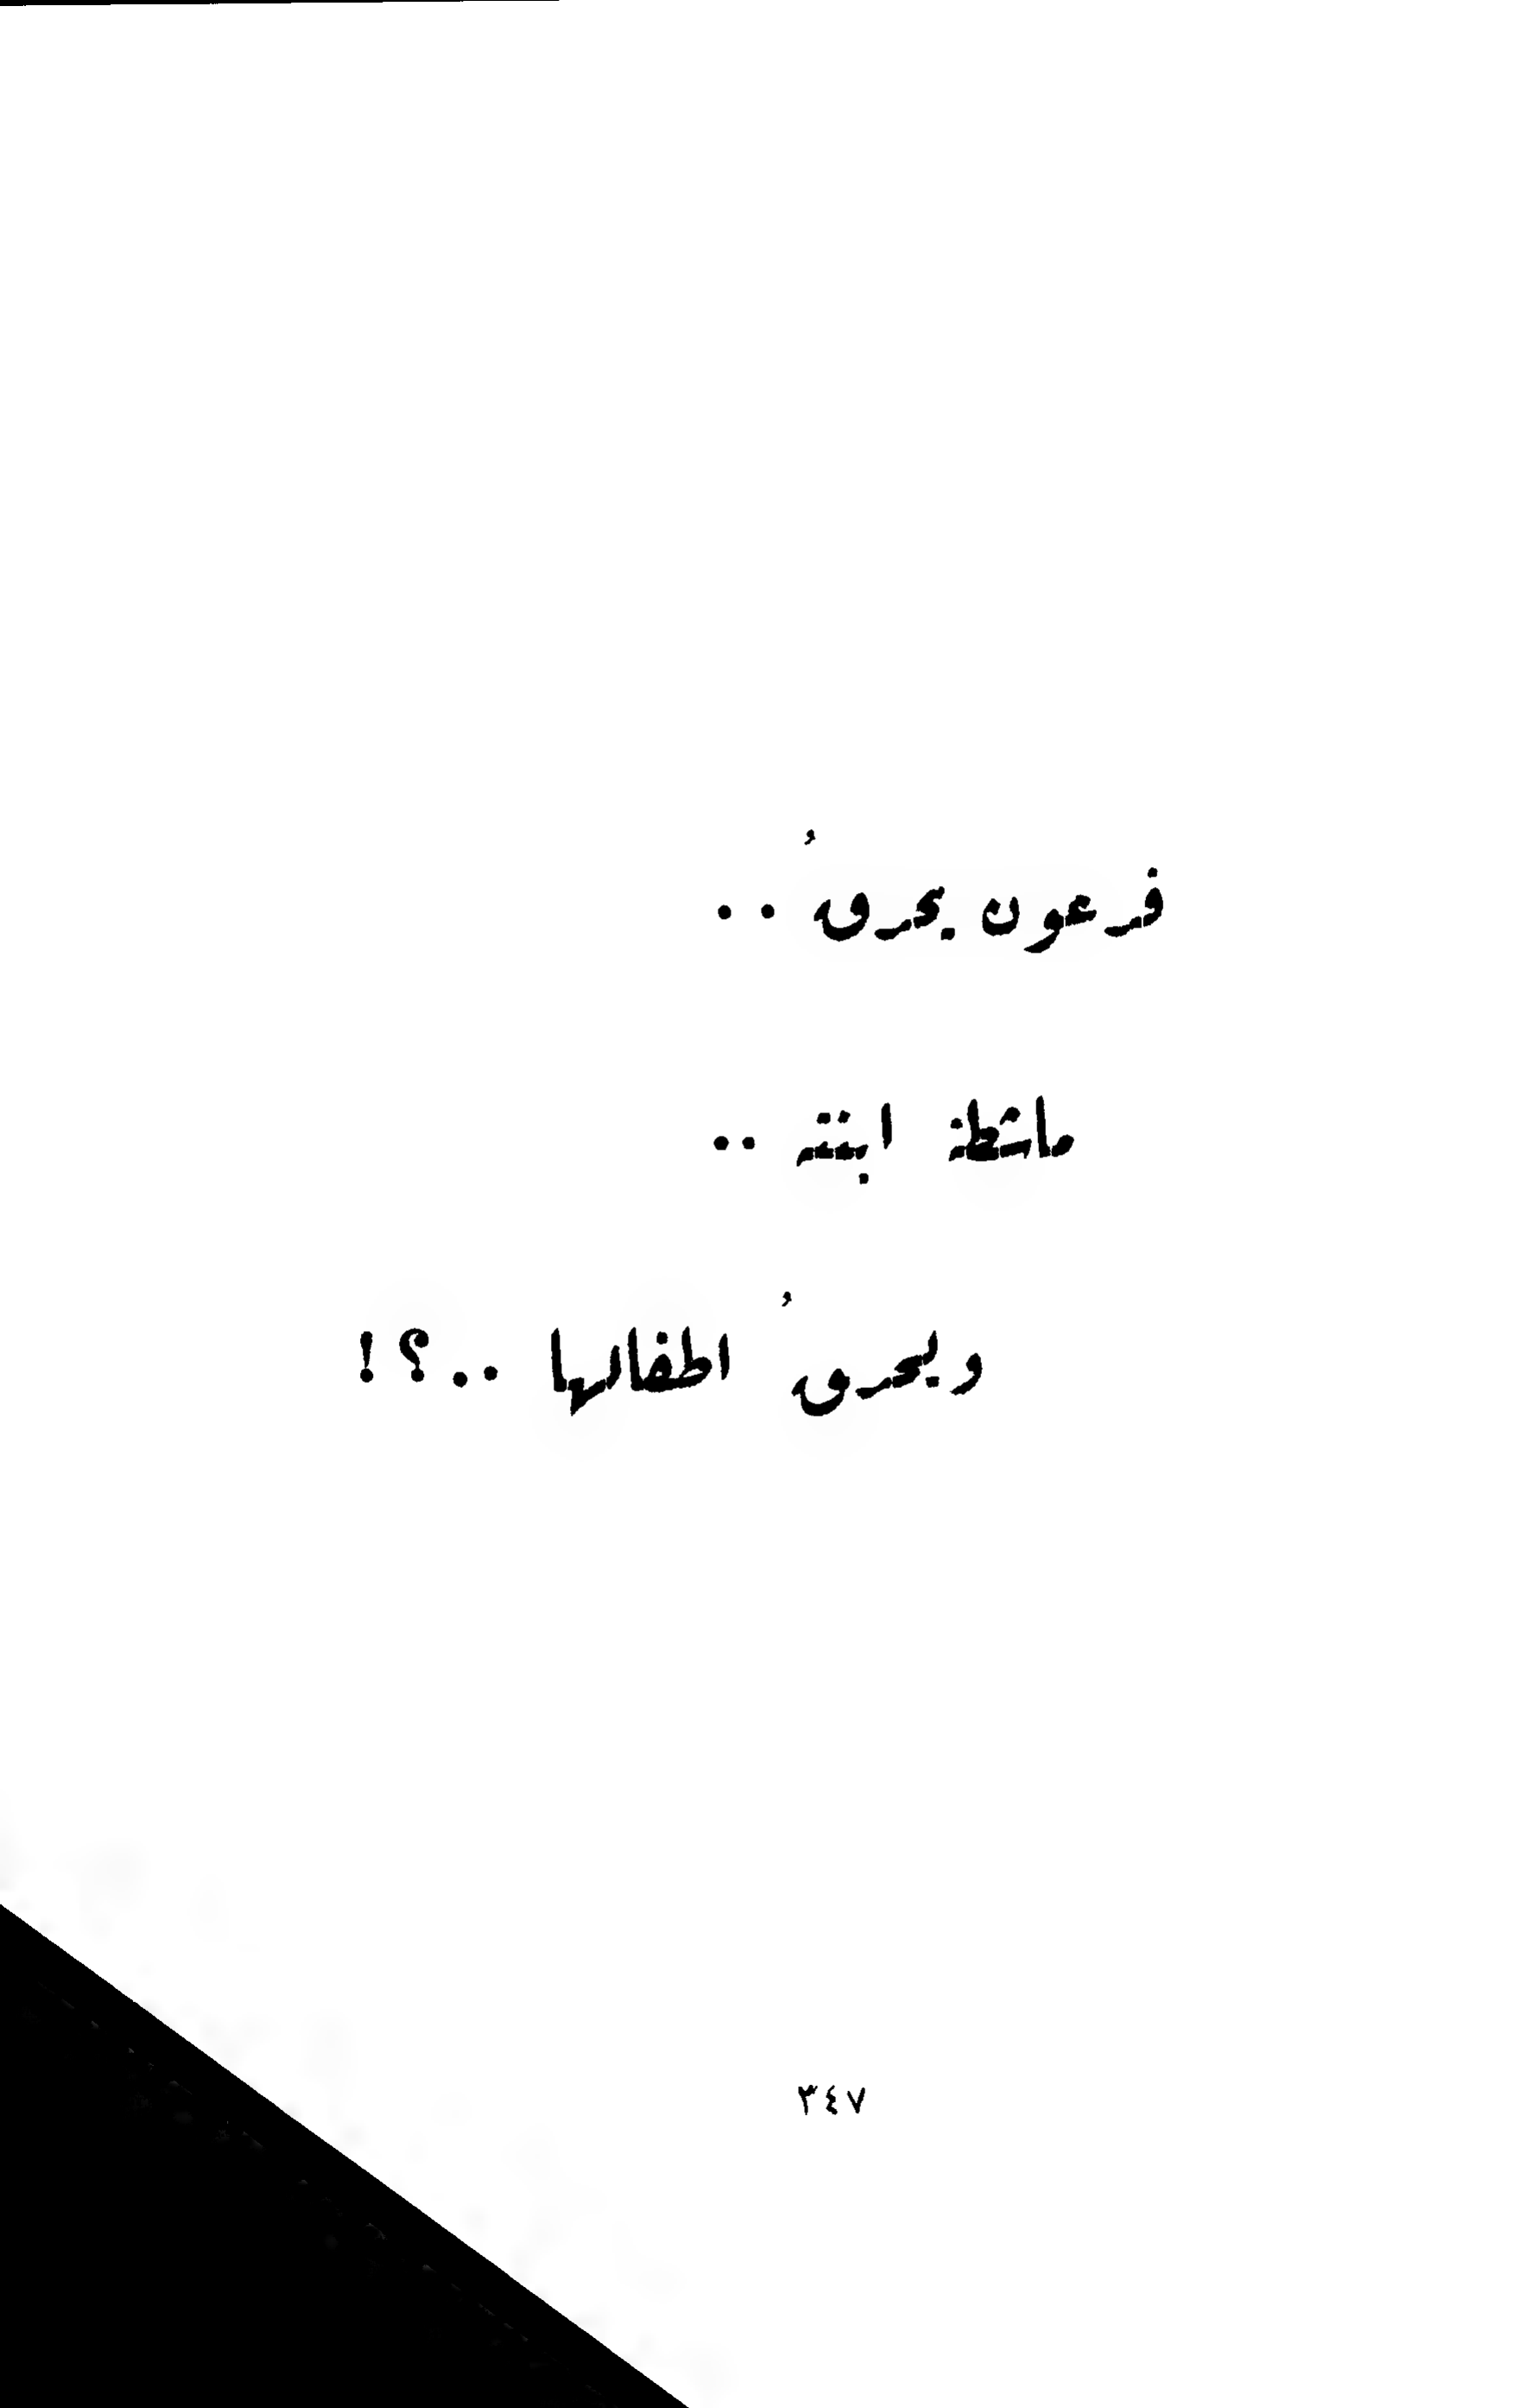 فرعون يحرقُ ..
ماشطة ابنته ..
ويحرقُ اطفالها ..؟!
٣٤٧